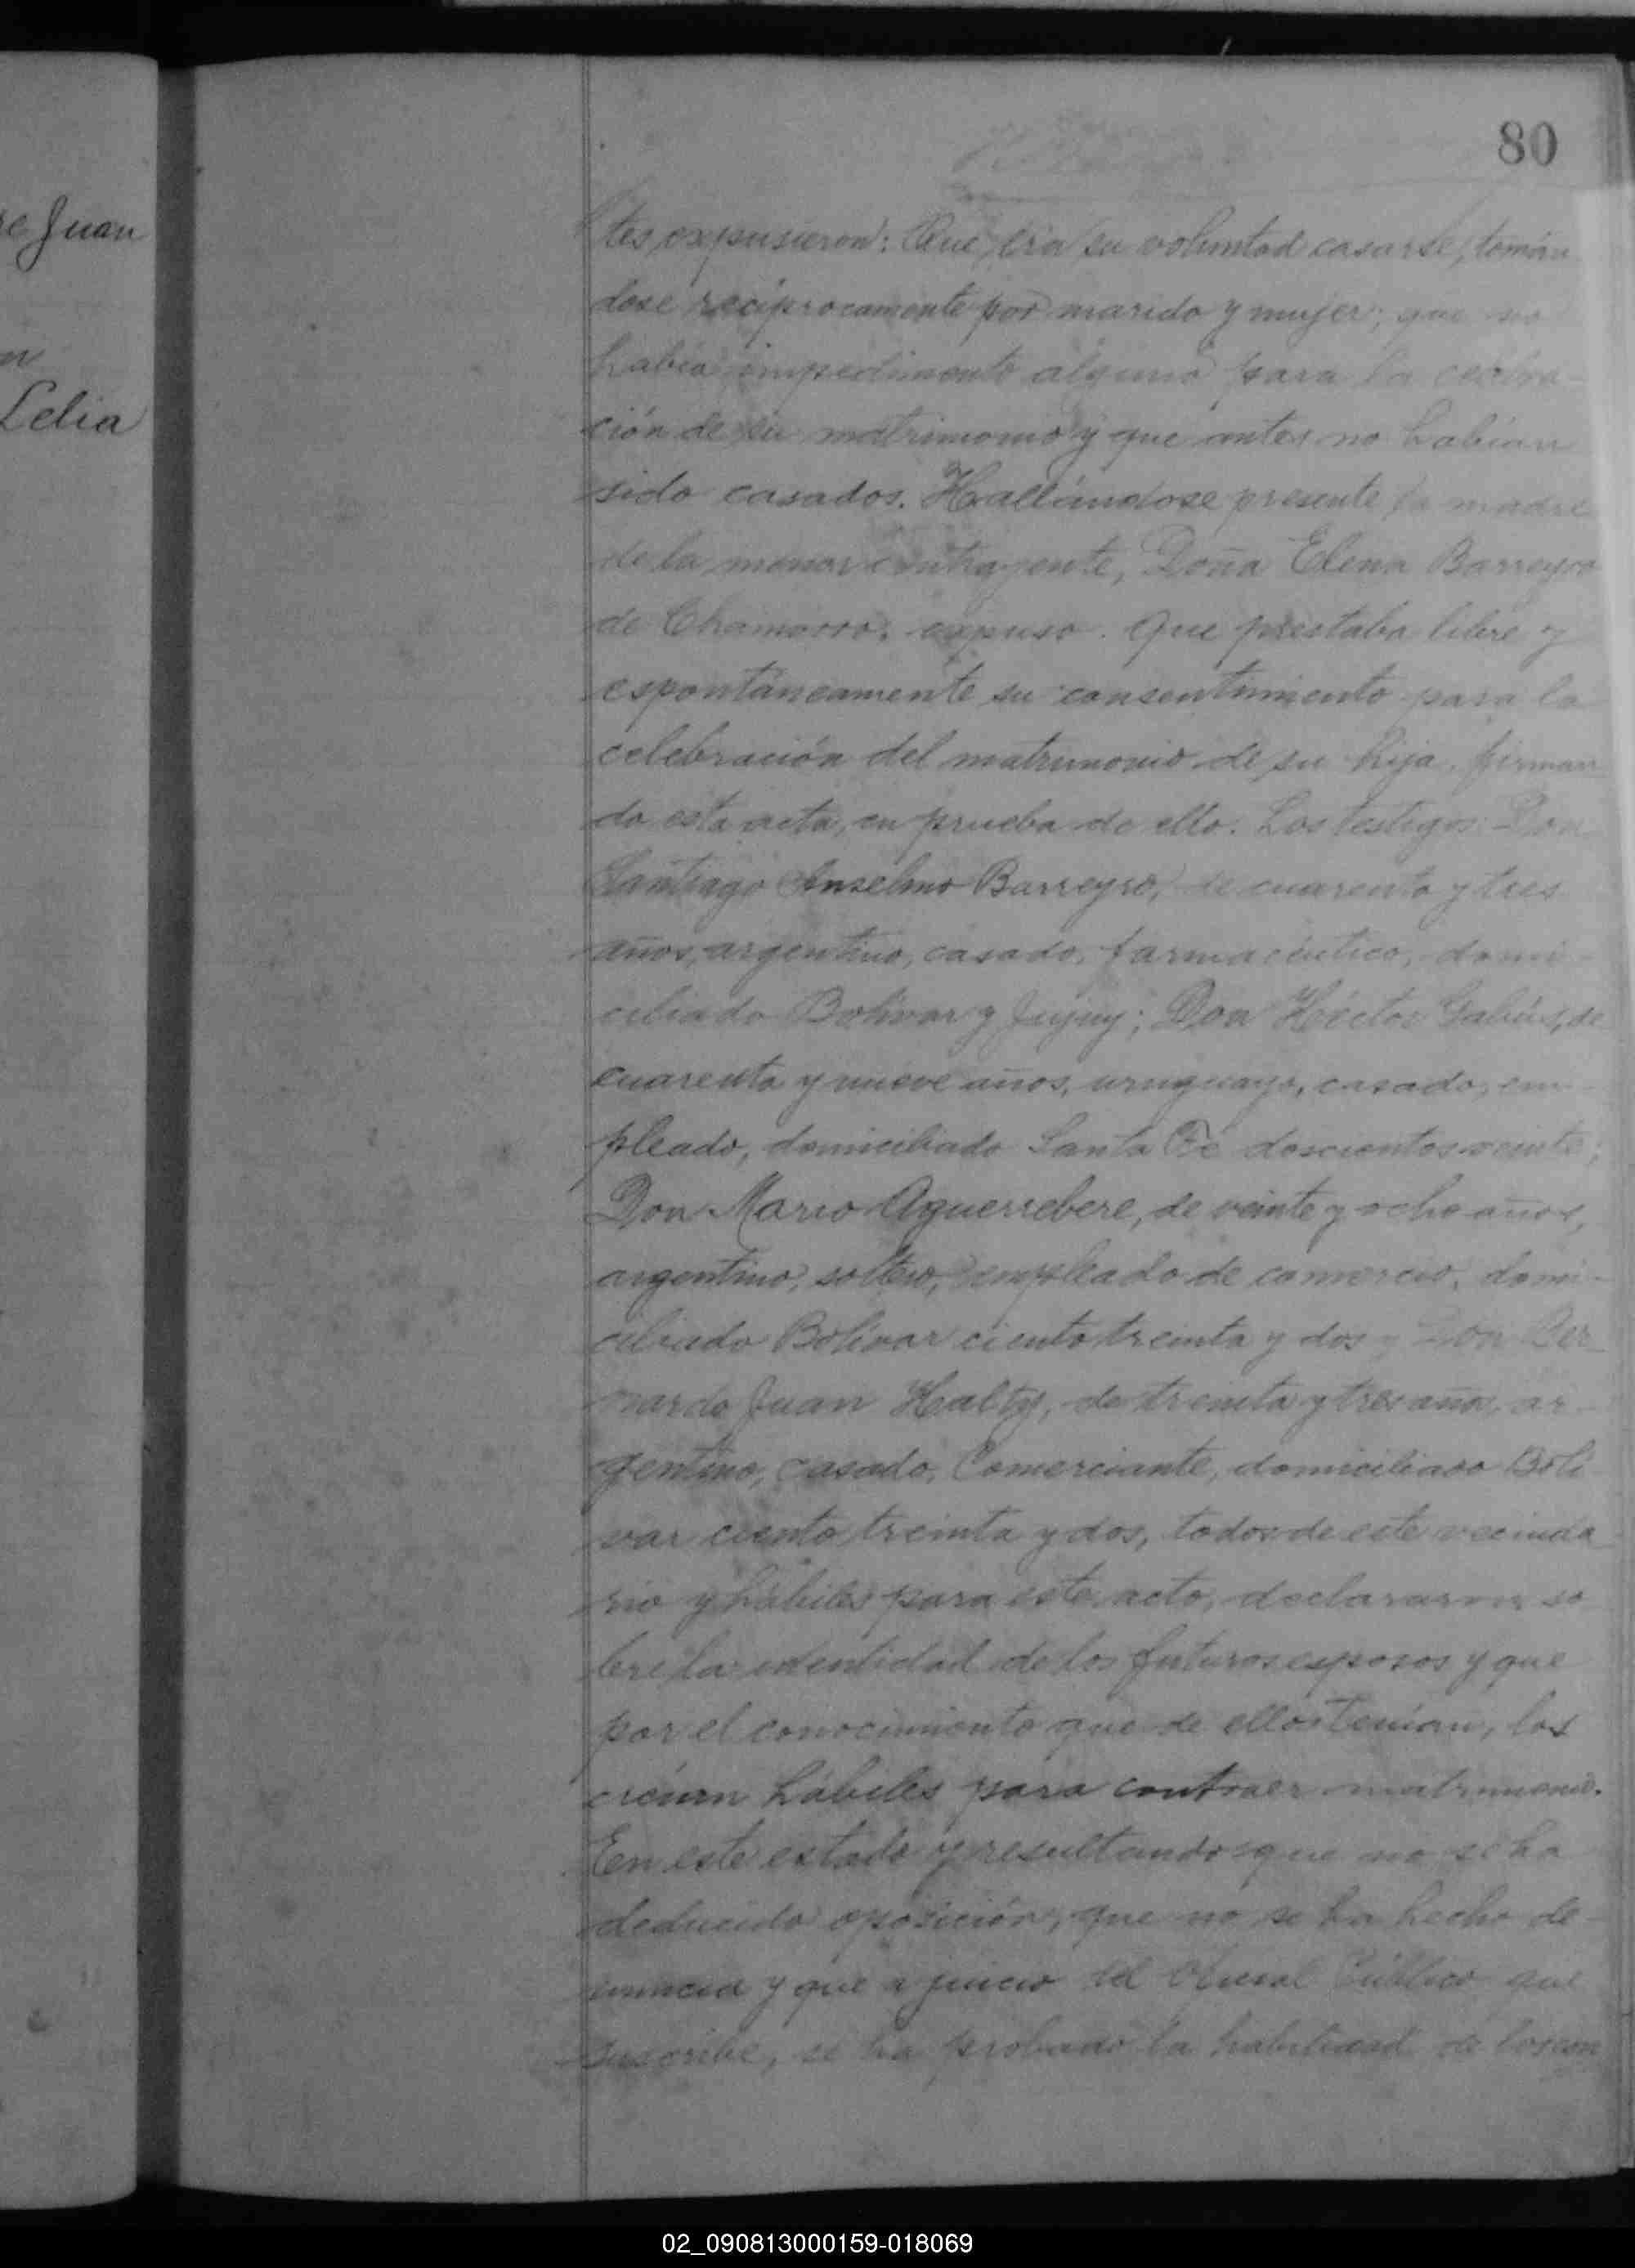 80
re Juan
Lelia
tes, expusieron: Que, era su voluntad casarse, tomán
dose recíprocamente por marido y mujer; que no
había impedimento alguno para la celebra-
ción de su matrimonio y que antes no habían
sido casados. Hallándose presente la madre
de la menor contrayente, Doña Elena Barreyro
de Chamorro, expuso. Que prestaba libre y
espontáneamente su consentimiento para la
celebración del matrimonio de su hija, firman
do esta acta, en prueba de ello. Los testigos Don
Santiago Anselmo Barreyro, de cuarenta y tres
años, argentino, casado, farmacéutico, domi-
ciliado Bolívar y Jujuy; Don Héctor de
cuarenta y nueve años, uruguayo, casado, em-
pleado, domiciliado Santa Fe doscientos veinte;
Don Mario Aguerrebere, de veinte y ocho años,
argentino, soltero, empleado de comercio, domi-
ciliado Bolívar ciento treinta y dos y Don Ber
nardo Juan Halty, de treinta y tres años, ar-
gentino, casado, Comerciante, domiciliado Bolí
var ciento treinta y dos, todos de este vecinda
rio y hábiles para este acto, declararon so
bre la identidad de los futuros esposos y que
por el conocimiento que de ellos tenían, los
creían hábiles para contraer matrimonio.
En este estado y resultando que no se ha
deducido oposición, que no se ha hecho de-
nuncia y que a juicio del Oficial Público que
suscribe, se ha probado la habilidad de los con
02_090813000159-018069